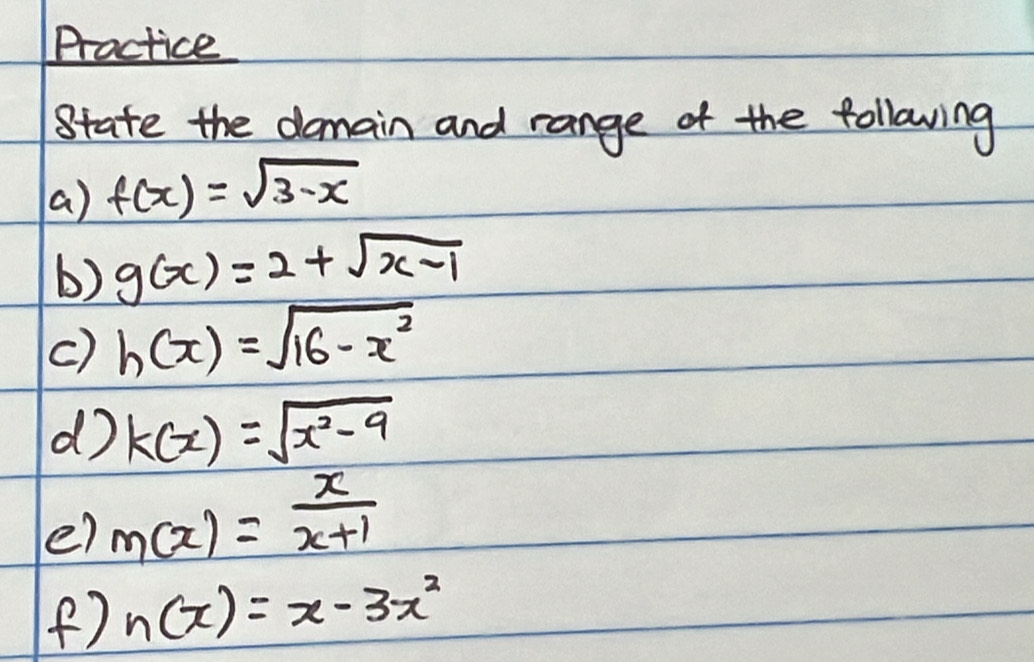 Practice
State the domain and range of the following
a) f(x) = √(3-x)
b) g(x) = 2 + √(x-1)
c) h(x) = √(16-x²)
d) k(x) = √(x²-9)
e) m(x) = x/(x+1)
f) n(x) = x - 3x²